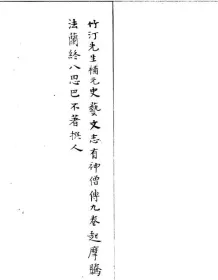 竹汀先生補元史藝文志有神僧傳九卷起摩騰
法蘭終八思巴不著撰人